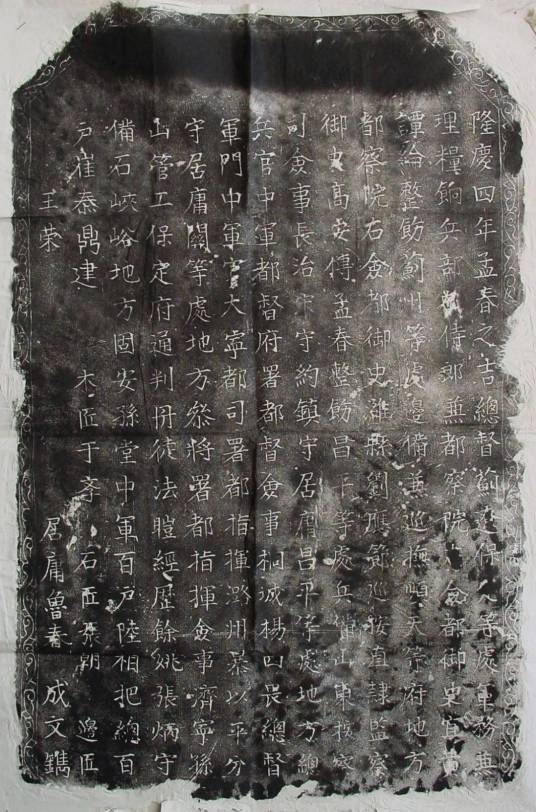 隆慶四年孟春之吉總督薊遼保定等處軍務兼
理糧餉兵部侍郎兼都察院右僉都御史宜黃
譚綸整飭薊州等處邊備兼巡撫順天等府地方
都察院右僉都御史濰縣劉應節巡按直隸監察
御史高安傅孟春整飭昌平等處兵備山東按察
司僉事長治宋守約鎮守居庸昌平等處地方總
兵官中軍都督府署都督僉事桐城楊四畏總督
軍門中軍官大寧都司署都指揮潞州暴以平分
守居庸關等處地方參將署都指揮僉事濟寧孫
山管工保定府通判冊徒法暟經歷餘姚張炳守
備石峽峪地方固安孫堂中軍百戶陸相把總百
戶崔泰鼎建 木匠于孝 石匠朝 邊匠
王荣 居庸魯春 成文鐫